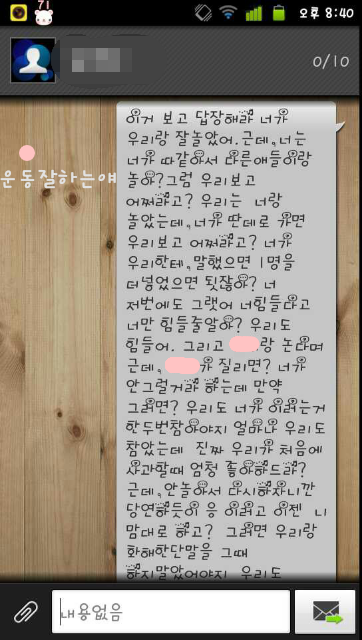 71
오후 8:40
0/10
이거 보고 답장해라 너가
우리랑 잘놀았어.근데,너는
너가 따같아서 다른애들이랑
놀아?그럼 우리보고
어쩌라고? 우리는 너랑
놀았는데,너가 딴데로 가면
우리보고 어쩌라고? 너가
우리한테,말했으면 1명을
더넣었으면 됫잖아? 너
저번에도 그랬어 너힘들다고
너만 힘들줄알아? 우리도
힘들어. 그리고 랑 논다며
근데, 가 질리면? 너가
안그럴거라 하는데 만약
그러면? 우리도 너가 이러는거
한두번참아야지 얼마나 우리도
참았는데 진짜 우리가 처음에
사과할때 엄청 좋아하드라?
근데,안놀아서 다시하자니깐
당연하듯이 응 이러고 이젠 니
맘대로 하고? 그러면 우리랑
화해한단말을 그때
하지말았어야지 우리도
운동잘하는애
내용없음